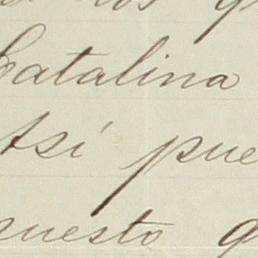 Catalina
Asi pue
puesto q